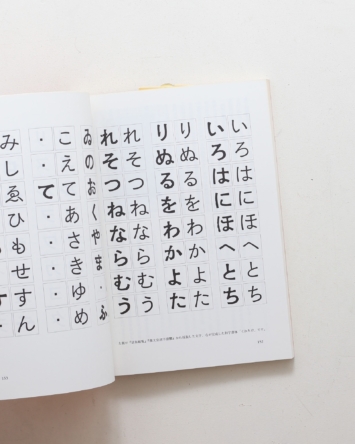 いろはにほへとち
いろはにほへとち
りぬるをわかよた
りぬるをわかよた
れそつねならむう
れそつねならむう
ゐのおくやま・ふ
こえてあさきゆめ
・・て・・・・・
みしゑひもせすん